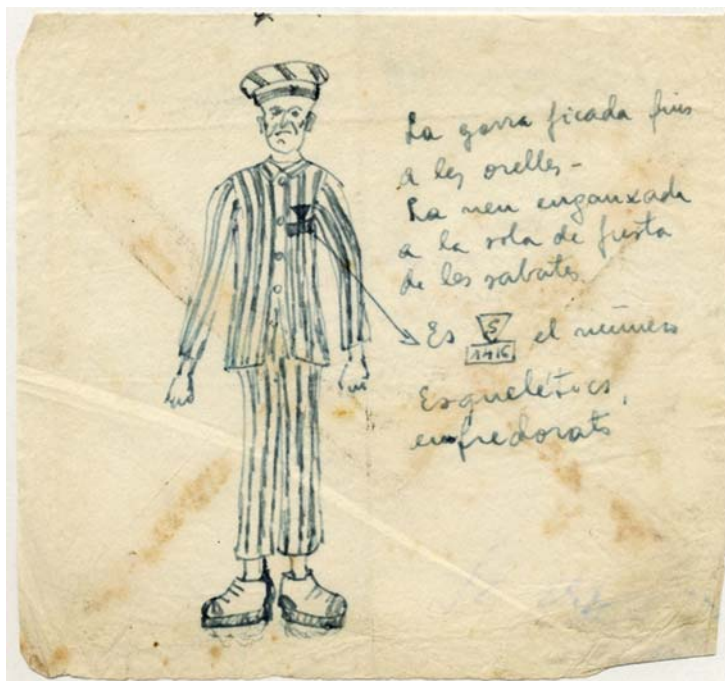 La gorra ficada fins
a les orelles -
La neu enganxada
a la sola de fusta
de les sabates.
Es S el número
1416
Esquelétics,
enfredorats